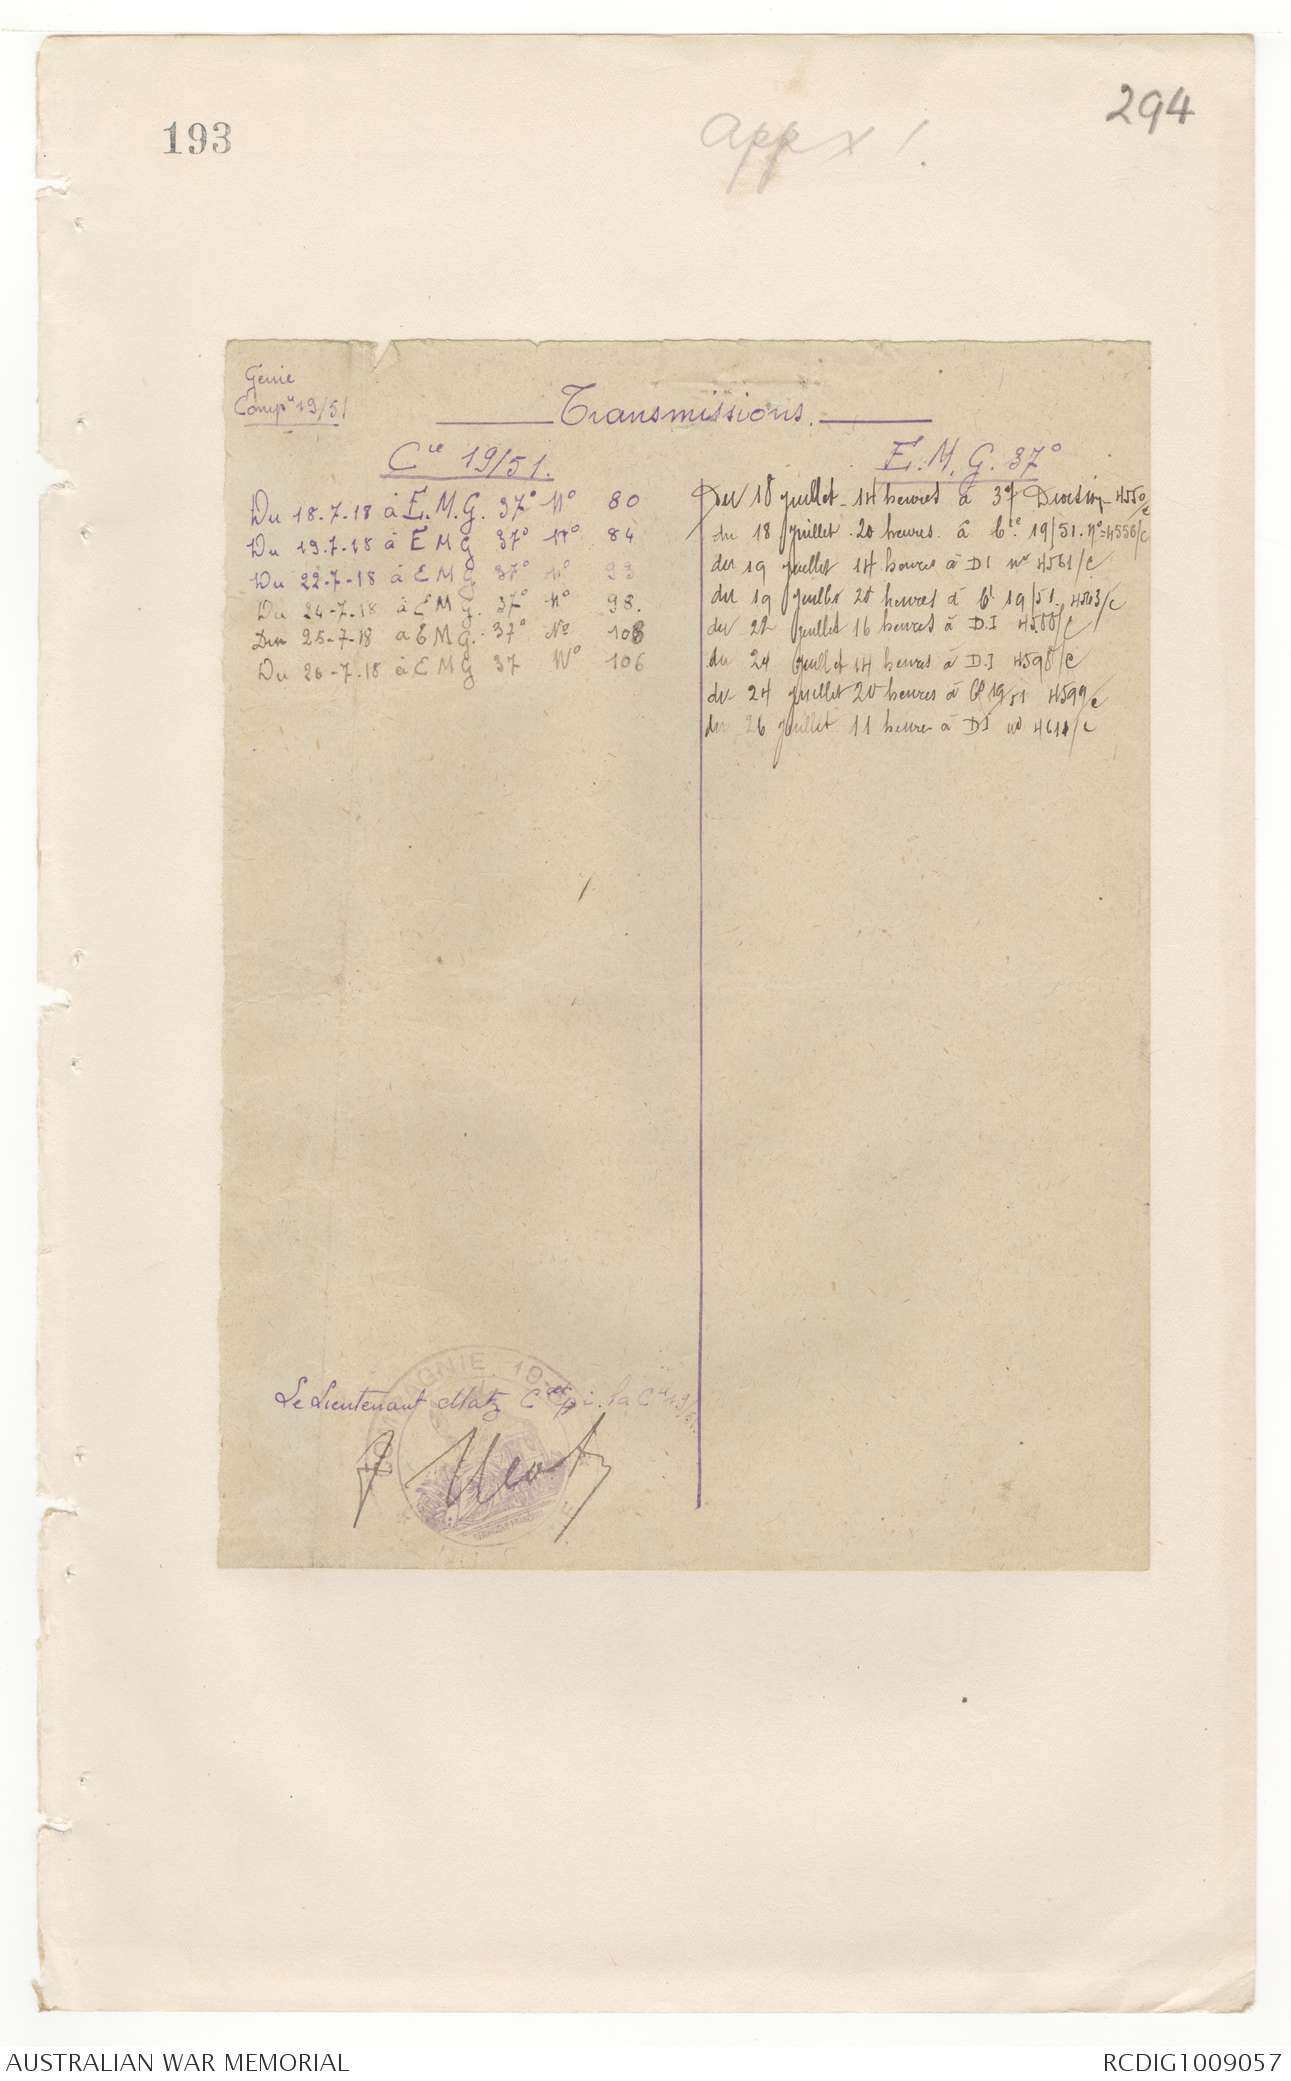 193
294
appx 1.
Génie
Compie 19/51
Transmissions.
Cie 19/51.
Du 18.7.18 à E.M.G. 37° N° 80
Du 19.7.18 à E M G 37° N° 84
Du 22-7-18 à E M G 37° N° 93
Du 24-7.18 à E M G. 37° N° 98.
Du 25-7-18 à E M G. 37° No 103
Du 26-7.18 à E M G 37 N° 106
E. M. G. 37°
Du 18 juillet - 14 heures à 37 Division - 4550/c
du 18 juillet 20 heures à Cie 19/51. N°= 4556/c
du 19 juillet 14 heures à DI no 4561/c
du 19 juillet 20 heures à Cie 19/51 4563/c
du 22 juillet 16 heures à D.I 4588/c
du 24 juillet 14 heures à D.I 4598/c
du 24 juillet 20 heures à Cie 19/51 4599/c
du 26 juillet 11 heures à DI no 4611/c
Le Lieutenant Matz Cdt p.i. la Cie 19/51.
COMPAGNIE 19-
Matz
AUSTRALIAN WAR MEMORIAL
RCDIG1009057